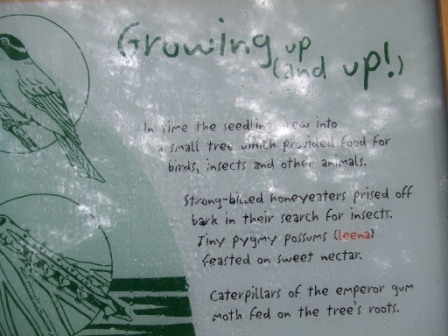 Growing up
(and up!)
In time the seedling grew into
a small tree which provided food for
birds, insects and other animals.
Strong-billed honeyeaters prised off
bark in their search for insects.
Tiny pygmy possums (leena)
feasted on sweet nectar.
Caterpillars of the emperor gum
moth fed on the tree's roots.